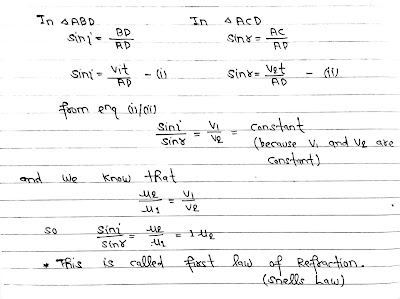 In △ABD In △ACD
sini = BD/AD sinr = AC/AD
sini = V₁t/AD - (i) sinr = V₂t/AD - (ii)
from eng (i)/(ii)
sini/sinr = V₁/V₂ = constant
(because V₁ and V₂ are
constant)
and we know that
μ₂/μ₁ = V₁/V₂
so sini/sinr = μ₂/μ₁ = 1μ₂
* This is called first law of Refraction.
(snells Law)